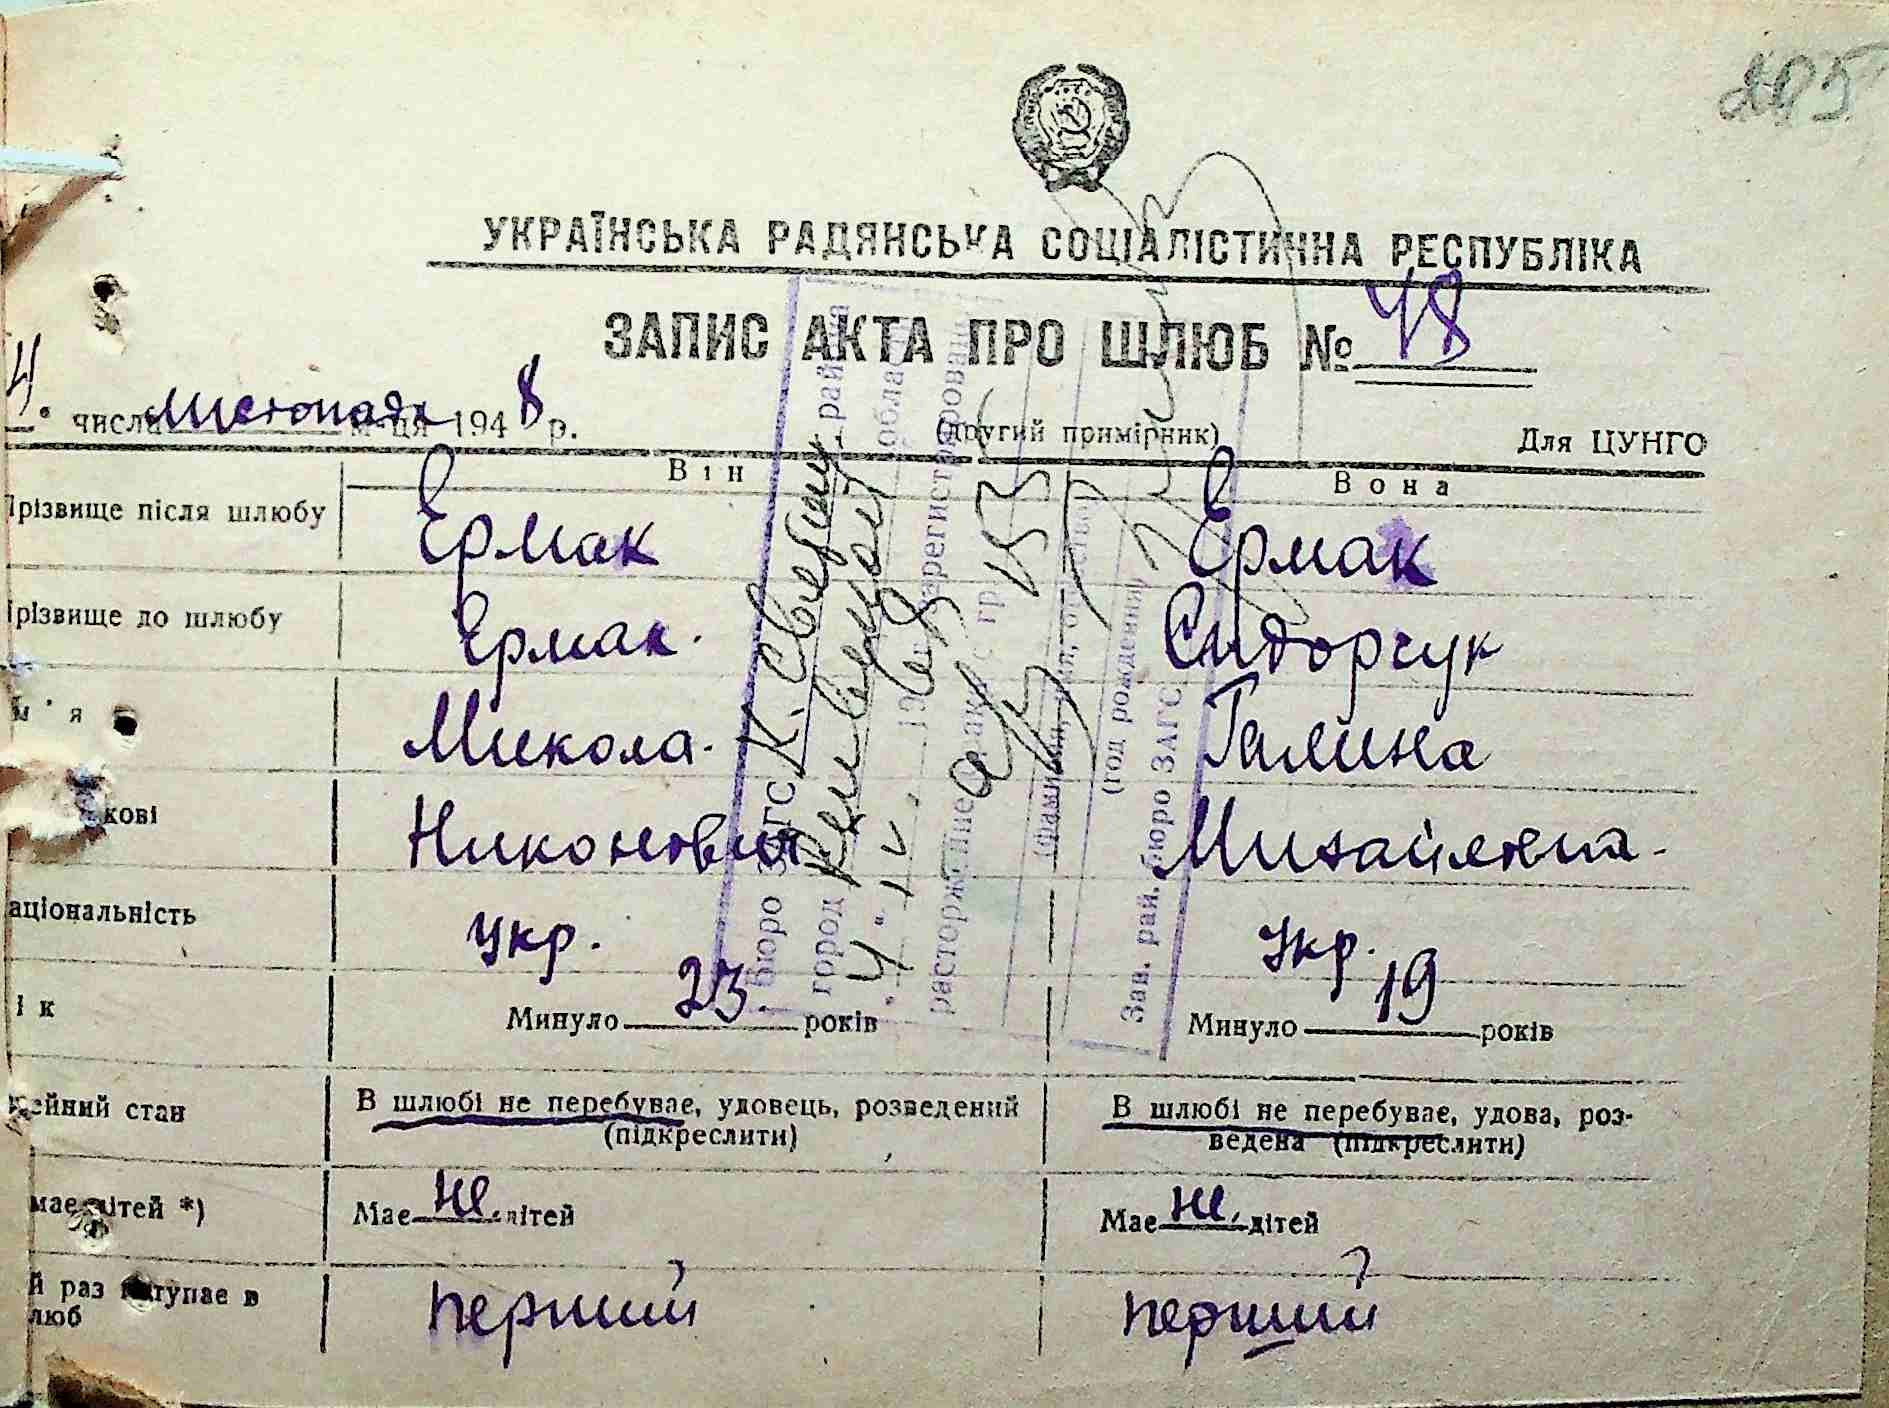 205
УКРАЇНСЬКА РАДЯНСЬКА СОЦІАЛІСТИЧНА РЕСПУБЛІКА
ЗАПИС АКТА ПРО ШЛЮБ № 48
4. числа листопада м-ця 1948 р. (другий примірник) Для ЦУНГО
Він Вона
Прізвище після шлюбу Ермак Ермак
Прізвище до шлюбу Ермак. Сидорчук
м'я Микола. Галина
кові Никонович Михайловна.
аціональність укр. укр.
ік Минуло 23. років Минуло 19 років
ейний стан В шлюбі не перебуває, удовець, розведений (підкреслити) В шлюбі не перебуває, удова, роз-
ведена (підкреслити)
має дітей *) Має не. дітей Має не. дітей
й раз вступає в
люб перший перший
бюро ЗАГС район
город област
"4" IV 196 зарегистрирован
расторжение брака с гр.
(фамилия, имя, отчество)
(год рождения)
Зав. рай. бюро ЗАГС